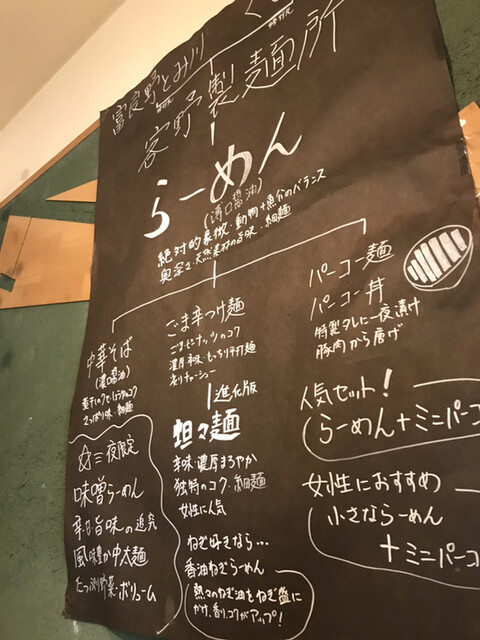 富良野とみ川
客野製麺所
らーめん
(薄口醤油)
絶対的象徴・動物+魚介のバランス
奥深さ・天然素材の旨味・細麺
パーコー麺
パーコー丼
特製タレに一夜漬け
豚肉から唐げ
ごま辛つけ麺
ごま・ピーナッツのコク
濃厚辛味・もっちり平打麺
炙りチャーシュー
中華そば
(濃口醤油)
さっぱり味・細麺
進化版
坦々麺
辛味・濃厚まろやか
独特のコク・細麺
女性に人気
人気セット!
らーめん+ミニパーコ
夜限定
味噌らーめん
辛旨味の追究
風味豊か中太麺
たっぷり野菜・ボリューム
女性におすすめ
小さならーめん
+ミニパーコ
ねぎ好きなら…
香油ねぎらーめん
熱々のねぎ油をねぎ盛に
かけ、香り、コクがアップ!